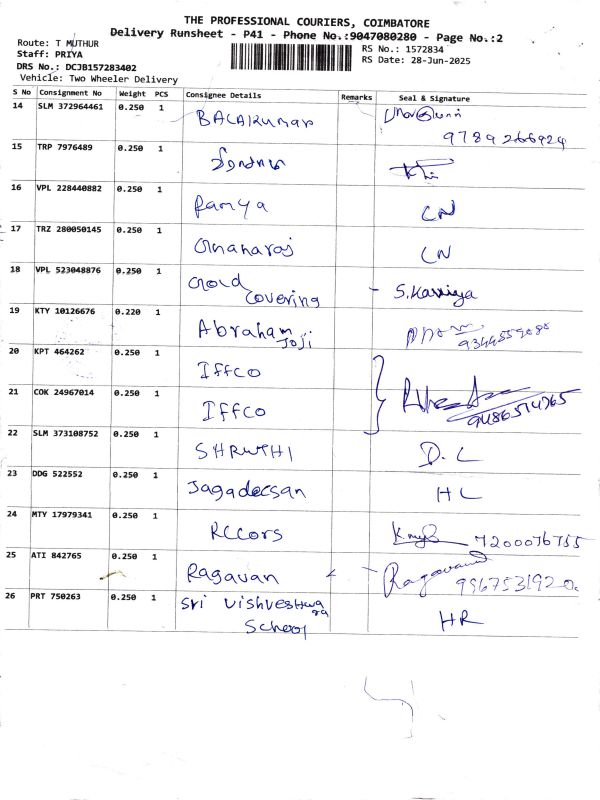 THE PROFESSIONAL COURIERS, COIMBATORE
Delivery Runsheet - P41 - Phone No.:9047080280 - Page No.:2
Route: T MUTHUR
RS No.: 1572834
Staff: PRIYA
RS Date: 28-Jun-2025
DRS No.: DCJB157283402
Vehicle: Two Wheeler Delivery
S No Consignment No Weight PCS Consignee Details Remarks Seal & Signature
14 SLM 372964461 0.250 1 BALAKUMAR
9789266924
15 TRP 7976489 0.250 1
16 VPL 228440882 0.250 1 Ramya CN
17 TRZ 280050145 0.250 1 CN
18 VPL 523048876 0.250 1 Gold Covering - S.Kaviya
19 KTY 10126676 0.220 1 Abraham Joji
20 KPT 464262 0.250 1 IFFCO
21 COK 24967014 0.250 1 IFFCO
22 SLM 373108752 0.250 1 SHRUTHI D.L
23 DDG 522552 0.250 1 Jagadeesan HL
24 MTY 17979341 0.250 1 RCCORS 7200076755
25 ATI 842765 0.250 1 Ragavan Ragavand
9967531920
26 PRT 750263 0.250 1 Sri Vishveshwara School HR